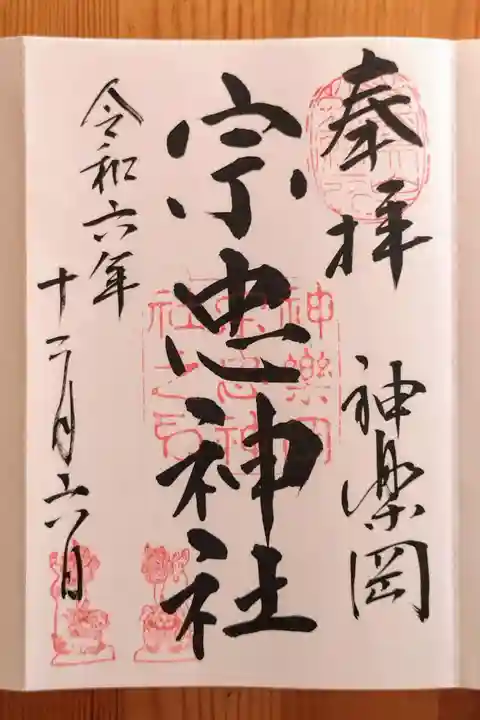 奉拝
神楽岡
宗忠神社
神樂岡
宗忠神
社之印
令和六年
十二月六日